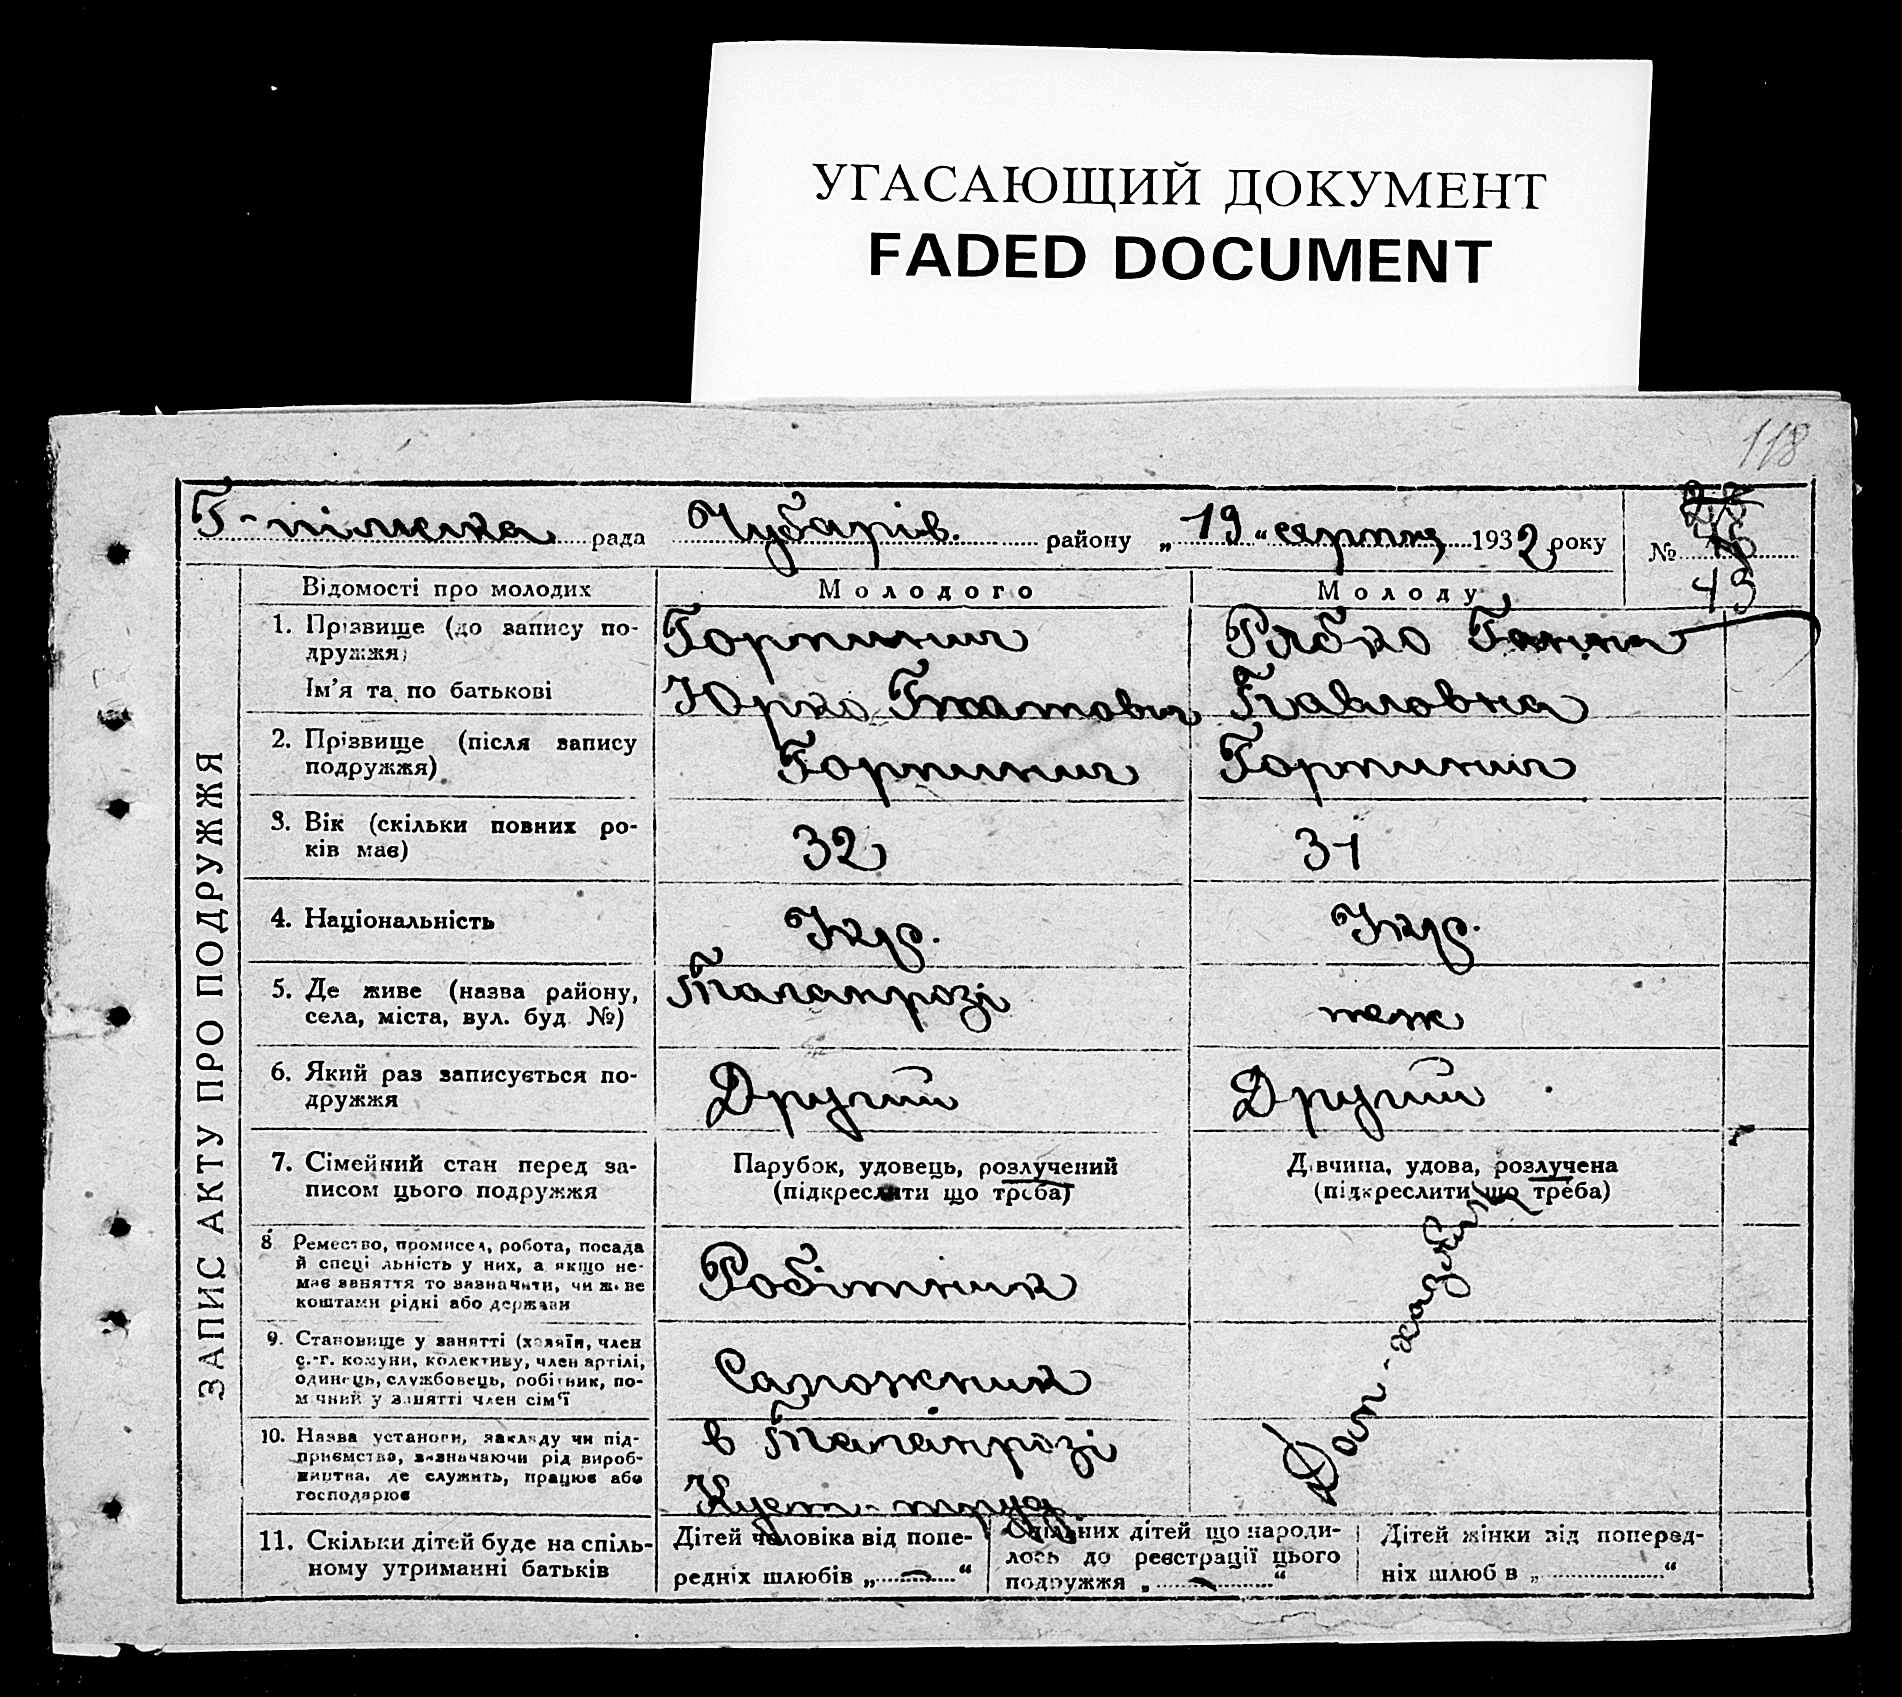 УГАСАЮЩИЙ ДОКУМЕНТ
FADED DOCUMENT
118
Г-пільська рада Чубарів. району „19" серпня 1932 року №
13
ЗАПИС АКТУ ПРО ПОДРУЖЖЯ
Відомості про молодих Молодого Молоду
1. Прізвище (до запису по-
дружжя)
Ім'я та по батькові
Горпинич
Юрко Гнатович
Рябко Ганна
Павловна
2. Прізвище (після запису
подружжя)
Горпинич Горпинич
3. Вік (скільки повних ро-
ків має)
32 31
4. Національність Укр. Укр.
5. Де живе (назва району,
села, міста, вул. буд. №)
Таганрозі теж
6. Який раз записується по-
дружжя
Другий Другий
7. Сімейний стан перед за-
писом цього подружжя
Парубок, удовець, розлучений
(підкреслити що треба)
Дівчина, удова, розлучена
(підкреслити що треба)
8 Ремество, промисел, робота, посада
й спеціяльність у них, а якщо не-
має заняття то зазначити, чи живе
коштами рідні або держави
Робітник
Дом-хазяйка
9. Становище у занятті (хазяїн, член
с.-г. комуни, колективу, член артілі,
одинець, службовець, робітник, по-
мічний у занятті член сім'ї
Сапожник
10. Назва установи, закладу чи під-
приємства, зазначаючи рід вироб-
ництва, де служить, працює або
господарює
в Таганрозі
11. Скільки дітей буде на спіль-
ному утриманні батьків
Дітей чоловіка від попе-
редніх шлюбів „ — "
Спільних дітей що народи-
лось до реєстрації цього
подружжя „ — "
Дітей жінки від поперед-
ніх шлюбів „ "